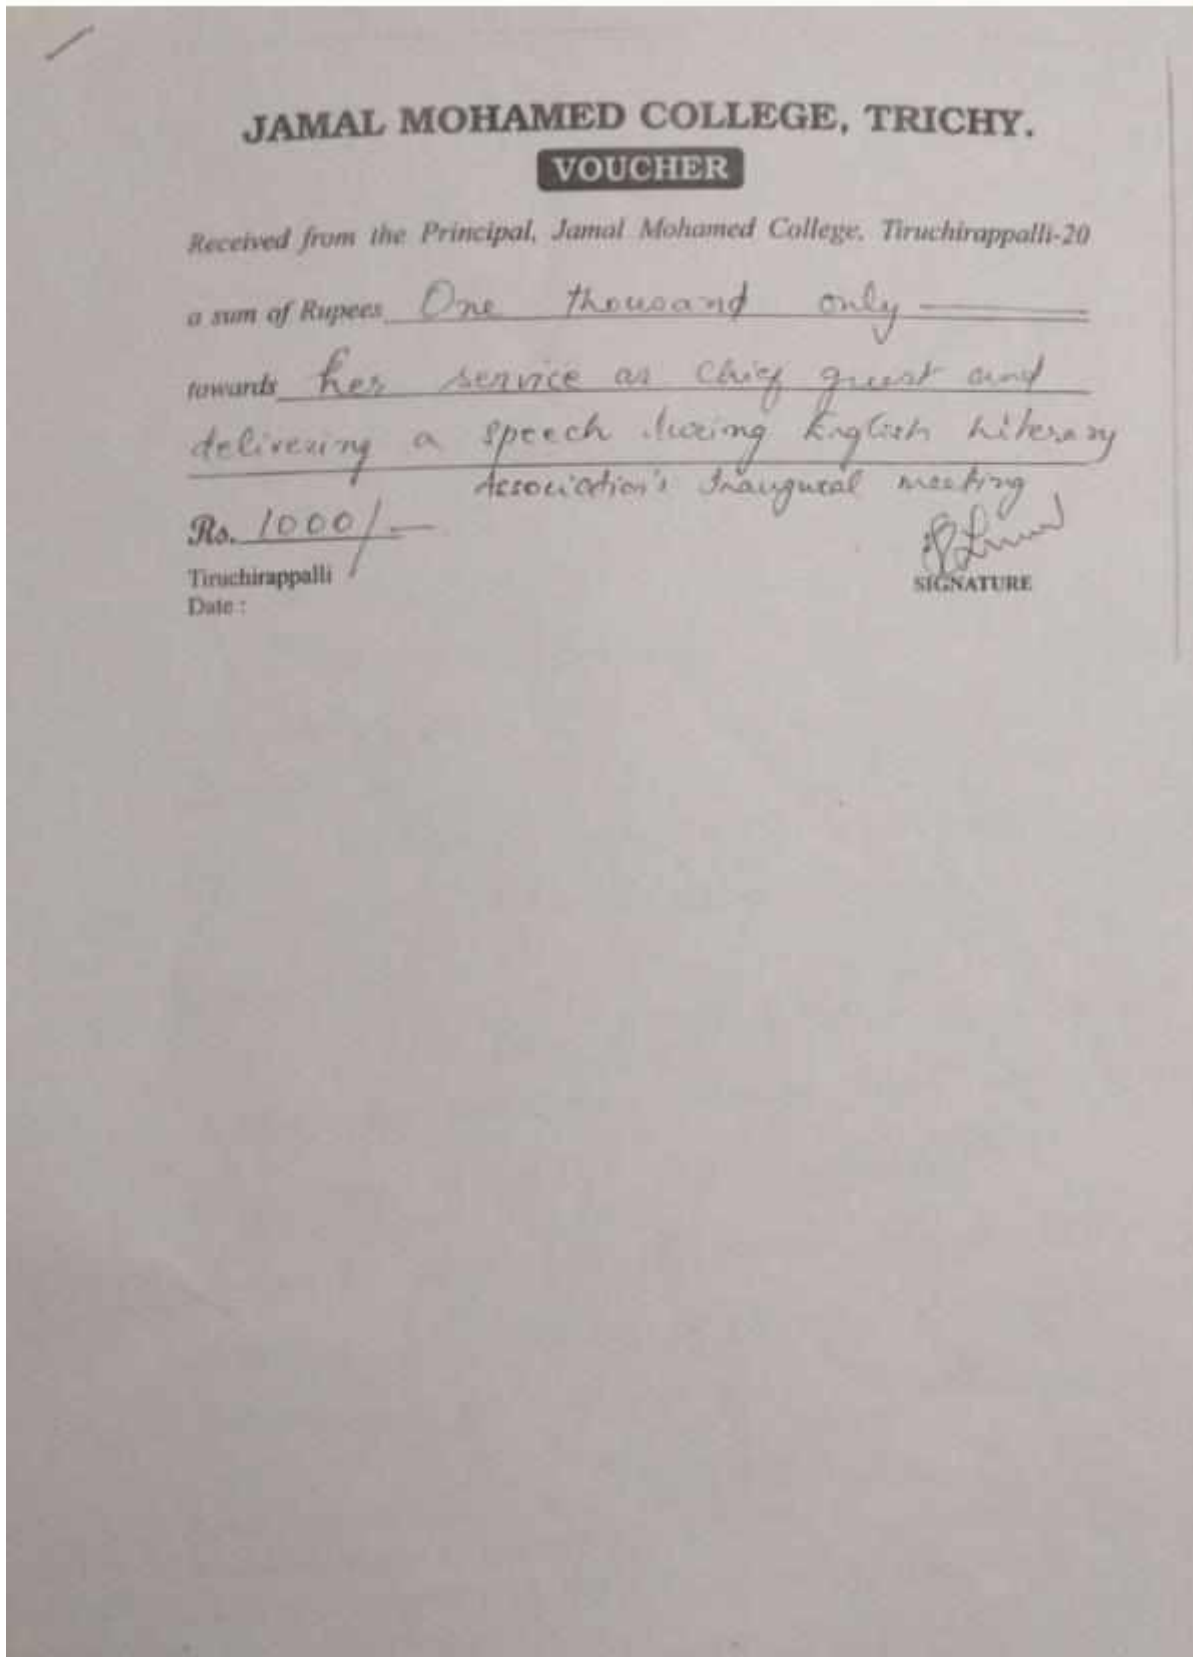 JAMAL MOHAMED COLLEGE, TRICHY.
VOUCHER
Received from the Principal, Jamal Mohamed College, Tiruchirappalli-20
a sum of Rupees One thousand only
towards her service as chief guest and
delivering a speech during English Literary
Association's Inaugural meeting
Rs. 1000/-
Tiruchirappalli
Date :
SIGNATURE